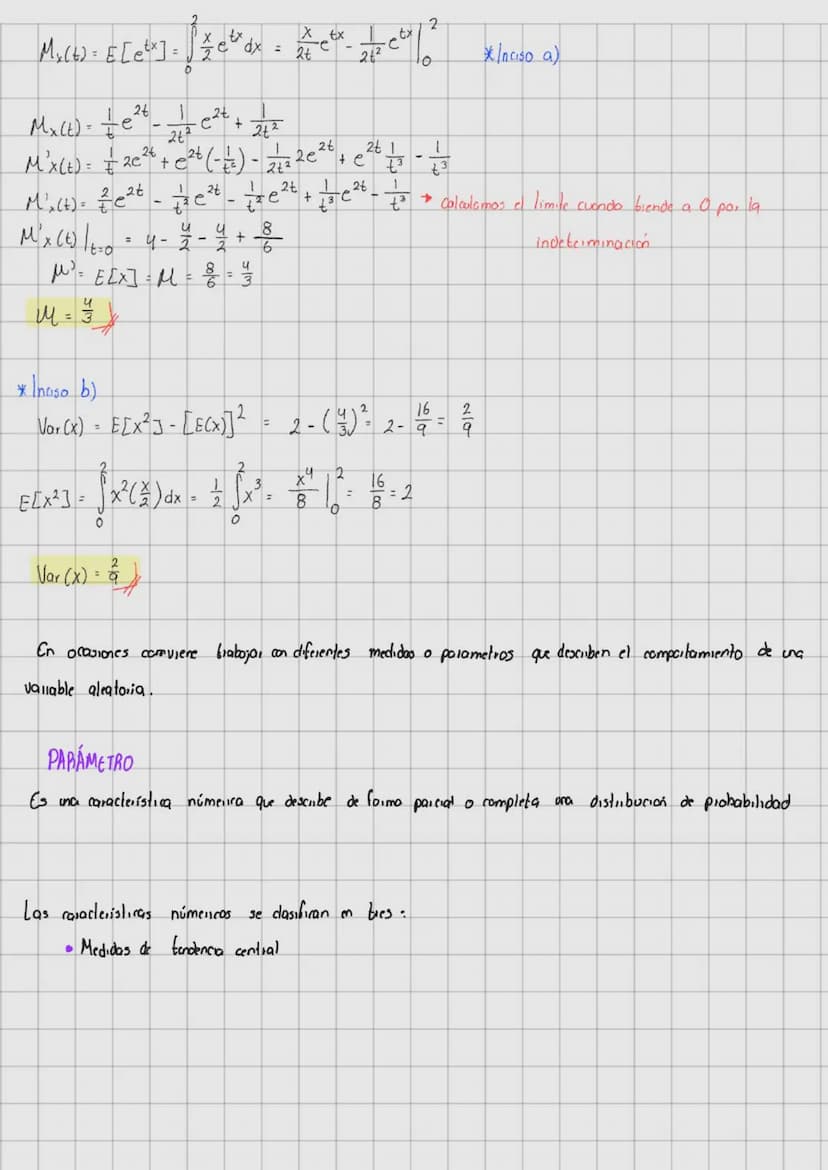 Mx(t) = E[e^tx] = ∫₀² x/2 e^tx dx = x/2t e^tx - 1/2t² e^tx |₀² *Inciso a)
Mx(t) = 1/t e^2t - 1/2t² e^2t + 1/2t²
M'x(t) = 1/t 2e^2t + e^2t (-1/t²) - 1/2t² 2e^2t + e^2t 1/t³ - 1/t³
M'x(t) = 2/t e^2t - 1/t² e^2t - 1/t² e^2t + 1/t³ e^2t - 1/t³ → Calculamos el limite cuando tiende a 0 por la
indeterminación
M'x(t)|t=0 = 4 - 4/2 - 4/2 + 8/6
μ' = E[x] = μ = 8/6 = 4/3
μ = 4/3
* Inciso b)
Var(x) = E[x²] - [E(x)]² = 2 - (4/3)² = 2 - 16/9 = 2/9
E[x²] = ∫₀² x² (x/2) dx = 1/2 ∫₀² x³ = x⁴/8 |₀² = 16/8 = 2
Var(x) = 2/9
En ocasiones conviene trabajar con diferentes medidas o parametros que describen el comportamiento de una
variable aleatoria.
PARÁMETRO
Es una característica númerica que describe de forma parcial o completa una distribución de probabilidad
Las características númericas se clasifican en tres:
• Medidas de tendencia central